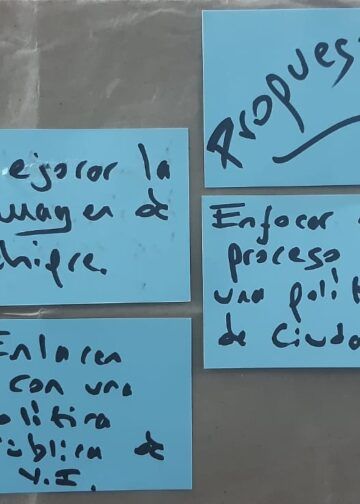 Propues
ejorar la
magen de
hipre.
Enfocar
proceso
una polít
de Ciuda
Enlacen
con una
olítica
ública de
V.I.